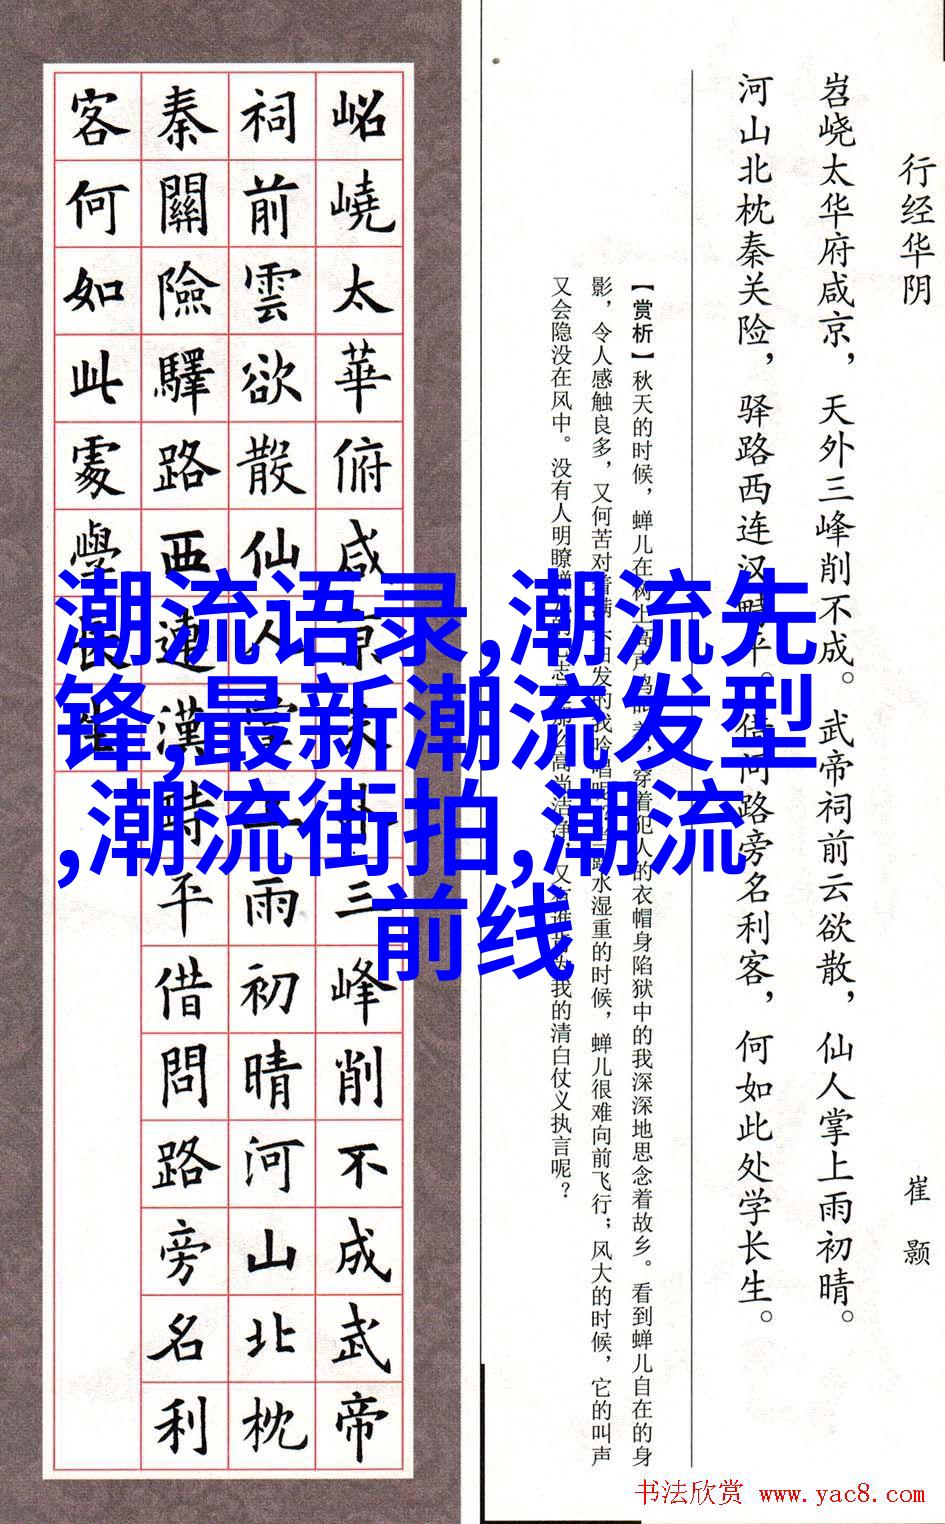 行经华阴
崔颢
岧峣太华府咸京，天外三峰削不成。武帝祠前云欲散，仙人掌上雨初晴。
河山北枕秦关险，驿路西连汉畤平。借问路旁名利客，何如此处学长生。
【赏析】秋天的时候，蝉儿在树上高声鸣
穿着犯人的衣帽身陷狱中的我深深地思念着故乡。看到蝉儿自在的身
影，令人感触良多，又何苦对着满
发的我吟唱呢
露水湿重的时候，蝉儿很难向前飞行；风大的时候，它的叫声
又会隐没在风中。没有人明瞭蝉
高尚洁净，又有谁
为我的清白仗义执言呢？
岹嶢太華俯咸京天外三峰削不成武帝
祠前雲欲散仙人掌上雨初晴河山北枕
秦關險驛路西連漢畤平借問路旁名利
客何如此處學長生
潮流语录,潮流先
锋,最新潮流发型
,潮流街拍,潮流
前线
书法欣赏 www.yac8.com